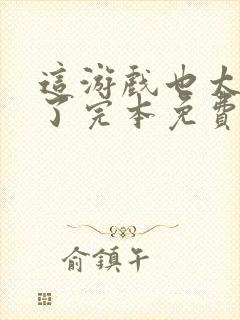 這游戲也太
了完本免費
俞鎮午